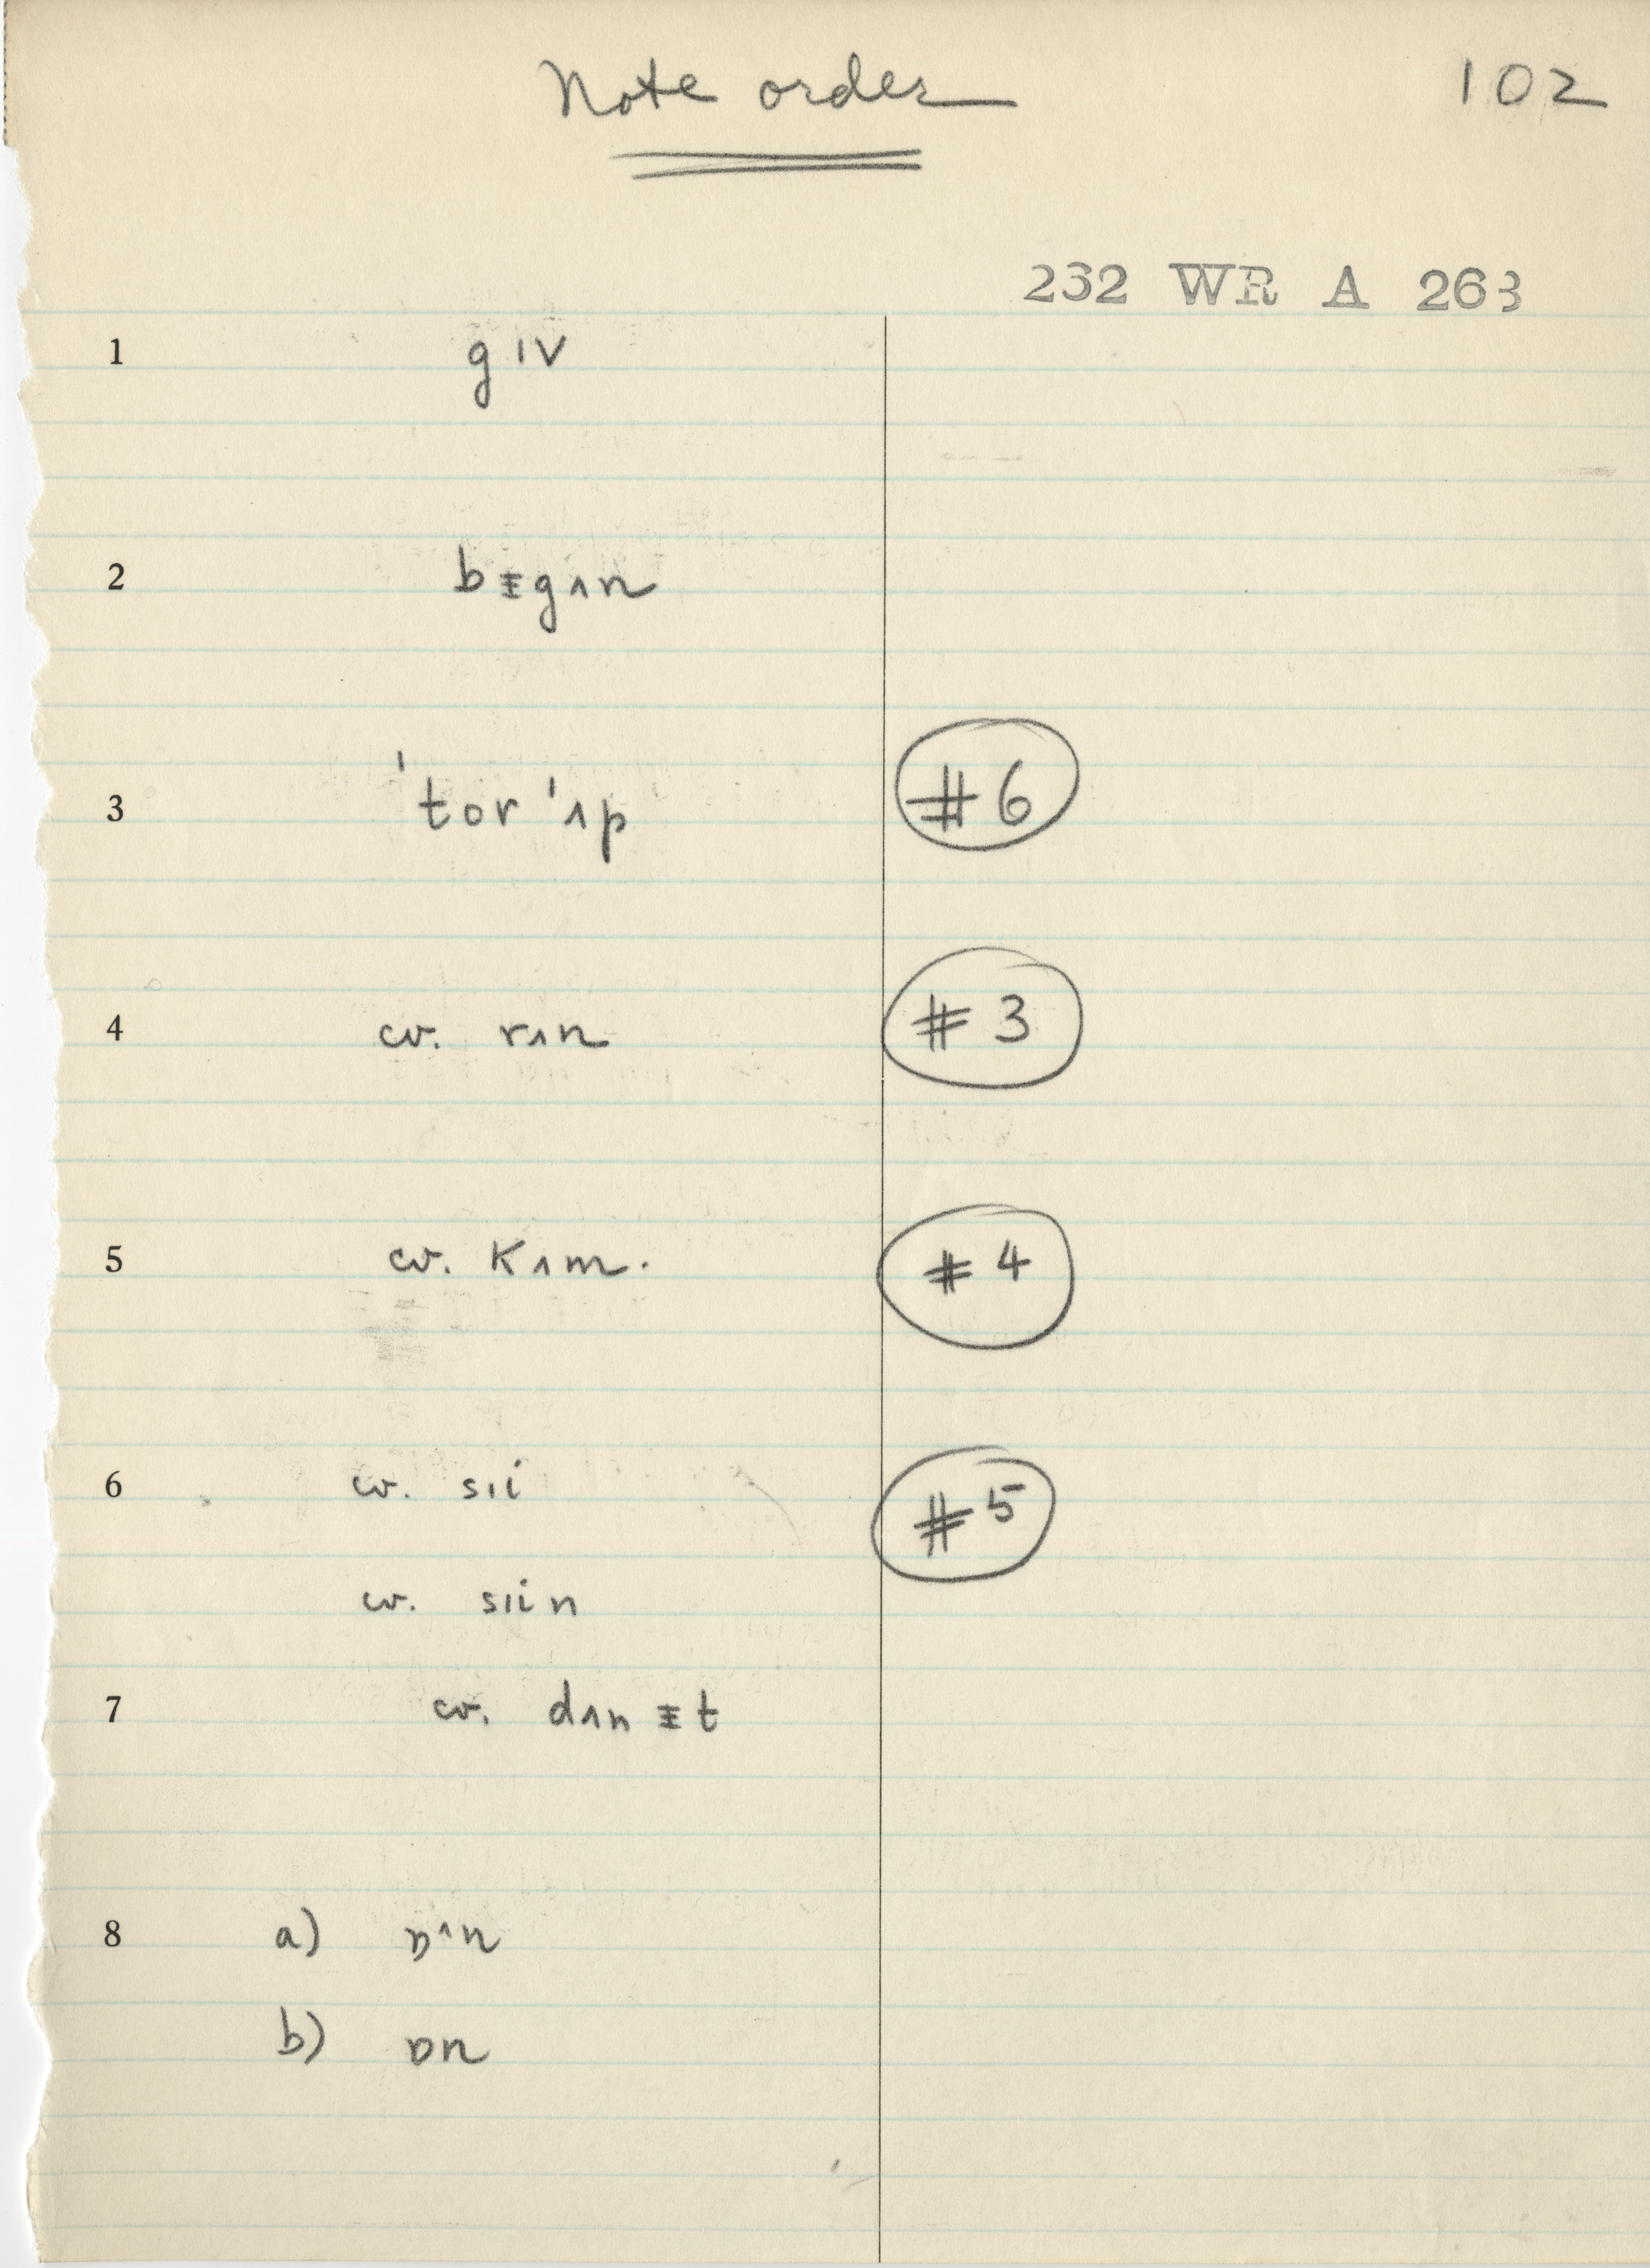 Note order 102
232 WR A 263
1 gɪv
2 bᵻgʌn
3 ˈtorˈʌp #6
4 cv. rʌn #3
5 cv. kʌm. #4
6 cv. sɪi #5
cv. sɪin
7 cv. dʌnᵻt
8 a) ɒ^n
b) ɒn